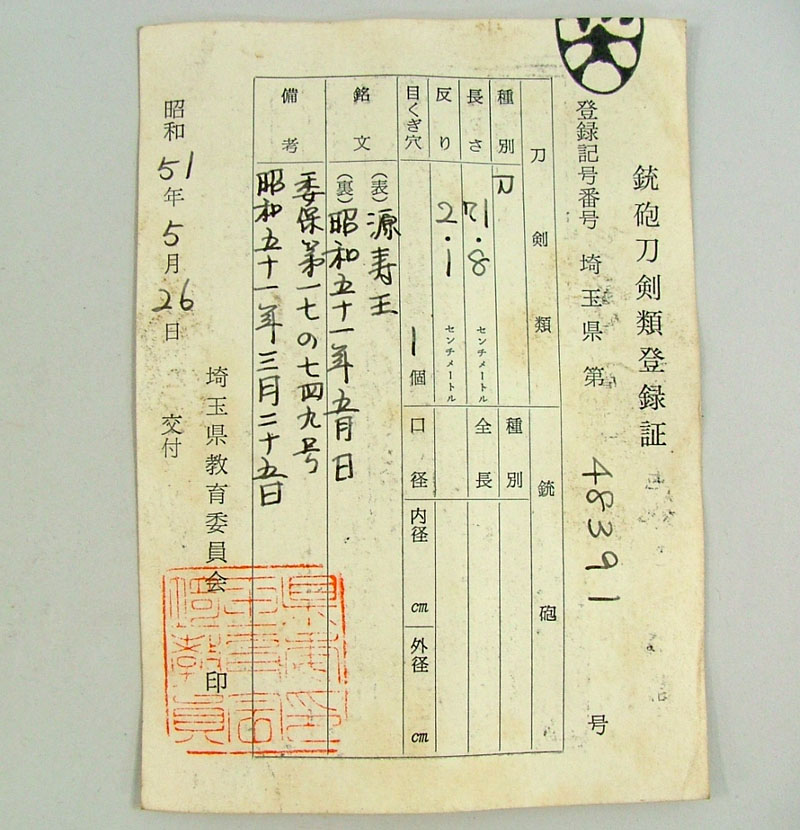 銃砲刀剣類登録証
登録記号番号 埼玉県 第 48391 号
刀剣類
種別 刀
長さ 71.8 センチメートル
反り 2.1 センチメートル
目くぎ穴 1個
銃砲
種別
全長
口径 内径 cm 外径 cm
銘文 (表)源寿王
(裏)昭和五十一年五月日
備考 委保第一七の七四九号
昭和五十一年三月二十五日
昭和51年5月26日 交付
埼玉県教育委員会 印